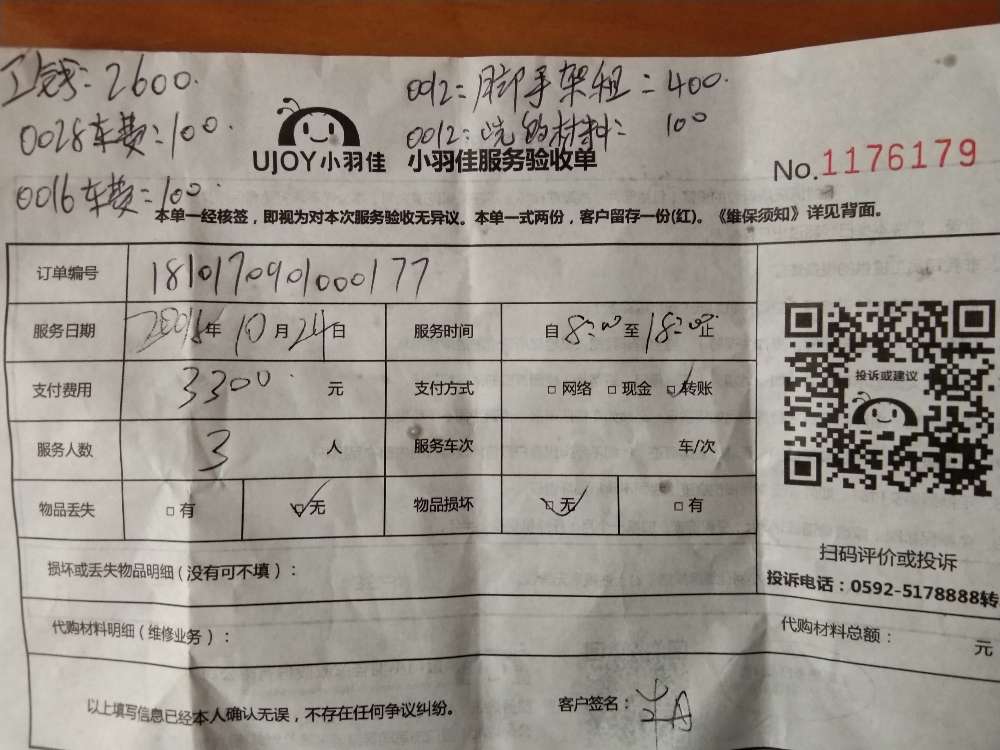 工钱=2600.
0012=脚手架租=400.
0028车费=100.
0012=洗的材料=100
0016车费=100.
UJOY小羽佳 小羽佳服务验收单
No.1176179
本单一经核签，即视为对本次服务验收无异议。本单一式两份，客户留存一份(红)。《维保须知》详见背面。
订单编号 1810170901000177
服务日期 年 10 月 24 日 服务时间 自 8:00 至 18:00 止
支付费用 3300 元 支付方式 □ 网络 □ 现金 □ 转账
投诉或建议
服务人数 3 人 服务车次 车/次
物品丢失 □ 有 □ 无 物品损坏 □ 无 □ 有
扫码评价或投诉
损坏或丢失物品明细（没有可不填）：
投诉电话：0592-5178888转
代购材料明细（维修业务）： 代购材料总额： 元
以上填写信息已经本人确认无误，不存在任何争议纠纷。 客户签名：